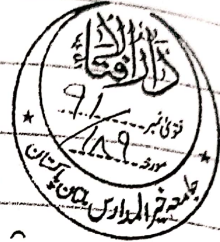 دارالافتاء
فتویٰ نمبر 91
مورخہ 189
جامعہ خیرالمدارس ملتان پاکستان